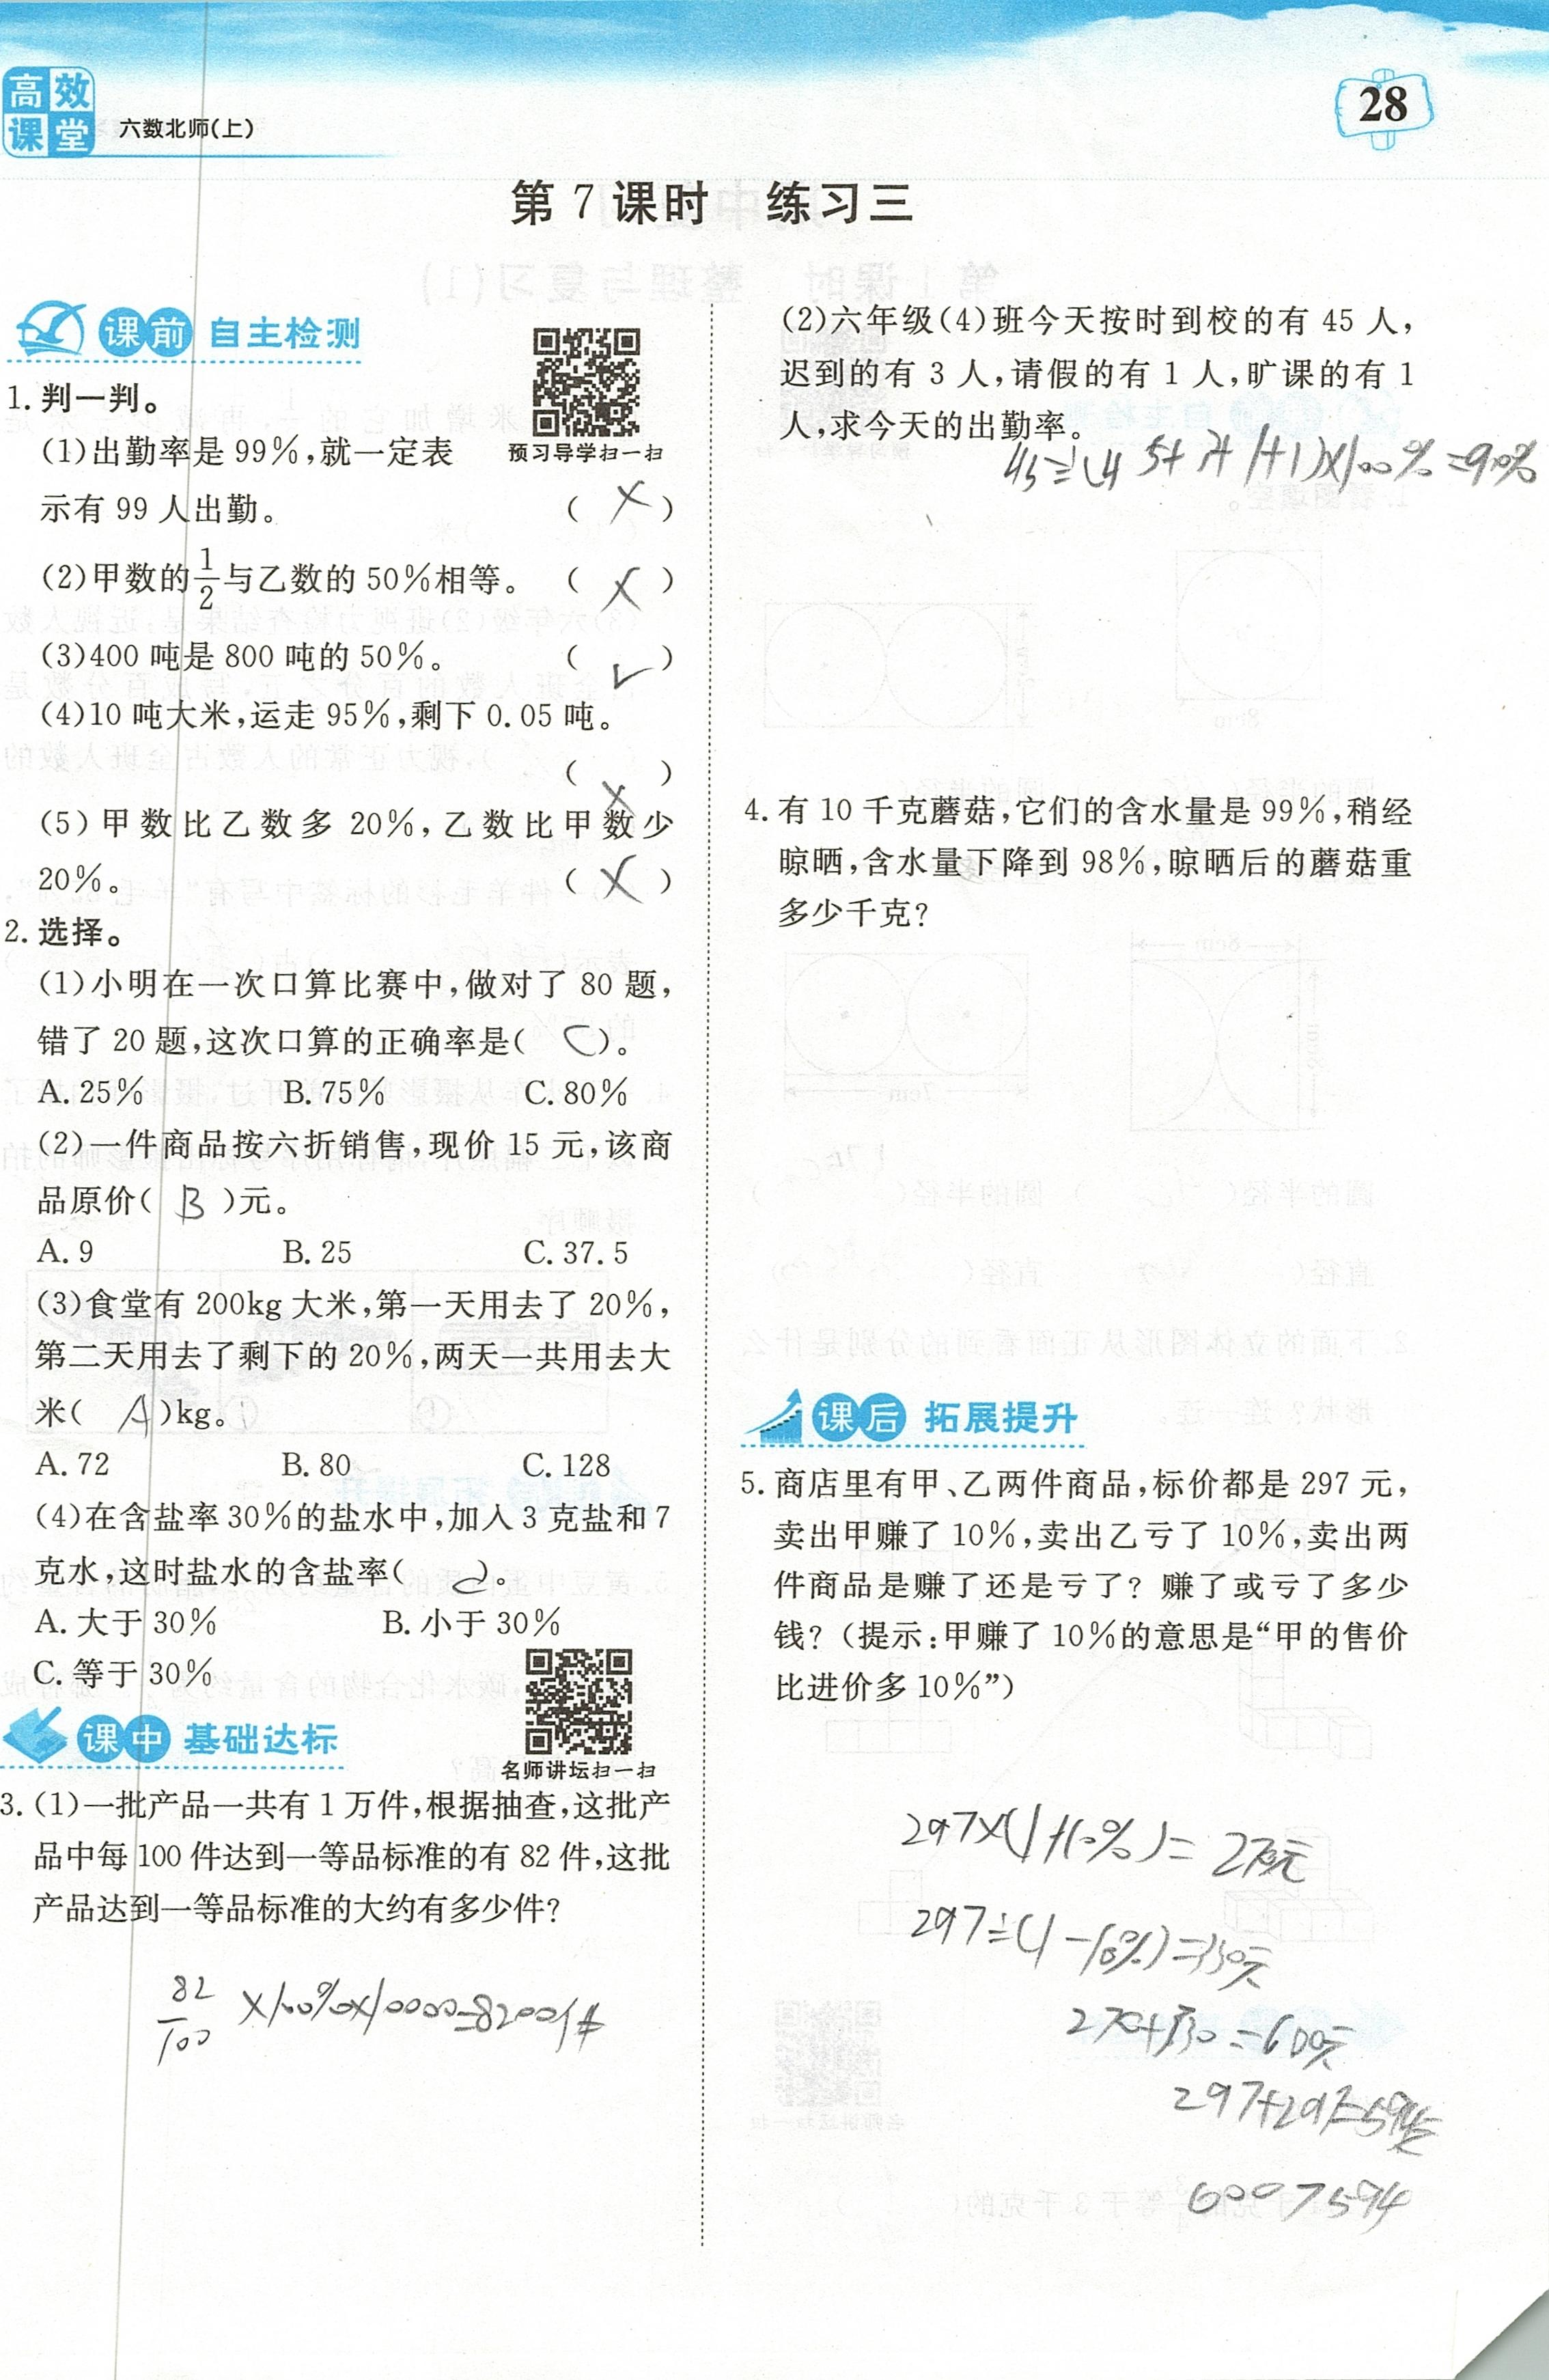 高效课堂
六数北师(上)
28
第7课时 练习三
课前 自主检测
预习导学扫一扫
1. 判一判。
(1)出勤率是99%,就一定表
示有99人出勤。 ( × )
(2)甲数的1/2与乙数的50%相等。 ( × )
(3)400吨是800吨的50%。 ( ✓ )
(4)10吨大米,运走95%,剩下0.05吨。
( × )
(5)甲数比乙数多20%,乙数比甲数少
20%。 ( × )
2. 选择。
(1)小明在一次口算比赛中,做对了80题,
错了20题,这次口算的正确率是( C )。
A. 25% B. 75% C. 80%
(2)一件商品按六折销售,现价15元,该商
品原价( B )元。
A. 9 B. 25 C. 37.5
(3)食堂有200kg大米,第一天用去了20%,
第二天用去了剩下的20%,两天一共用去大
米( A )kg。
A. 72 B. 80 C. 128
(4)在含盐率30%的盐水中,加入3克盐和7
克水,这时盐水的含盐率( C )。
A. 大于30% B. 小于30%
C. 等于30%
名师讲坛扫一扫
课中 基础达标
3. (1)一批产品一共有1万件,根据抽查,这批产
品中每100件达到一等品标准的有82件,这批
产品达到一等品标准的大约有多少件?
82/100 ×100%×10000=8200件
(2)六年级(4)班今天按时到校的有45人,
迟到的有3人,请假的有1人,旷课的有1
人,求今天的出勤率。
×100%=90%
4. 有10千克蘑菇,它们的含水量是99%,稍经
晾晒,含水量下降到98%,晾晒后的蘑菇重
多少千克?
课后 拓展提升
5. 商店里有甲、乙两件商品,标价都是297元,
卖出甲赚了10%,卖出乙亏了10%,卖出两
件商品是赚了还是亏了?赚了或亏了多少
钱?(提示:甲赚了10%的意思是“甲的售价
比进价多10%”)
297×(1+10%)=270元
297÷(1-10%)=330元
270+330=600元
297+297=594元
600>594